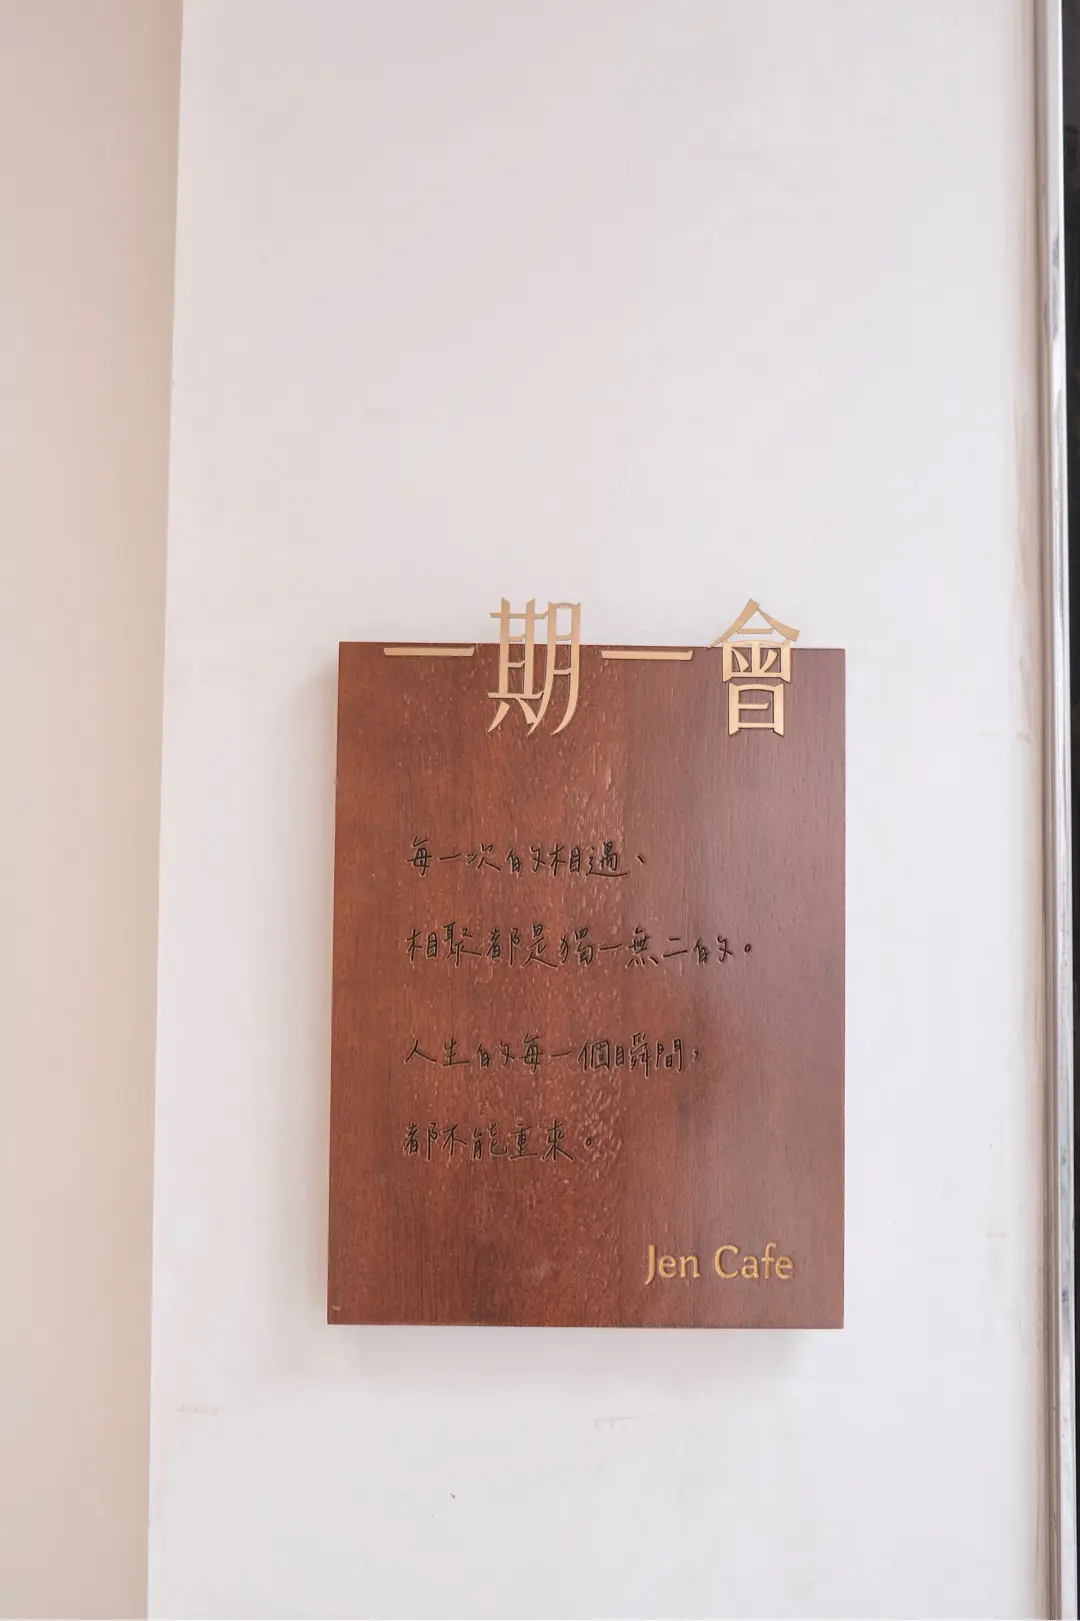 一期一會
每一次的相遇、
相聚都是獨一無二的。
人生的每一個瞬間，
都不能重來。
Jen Cafe